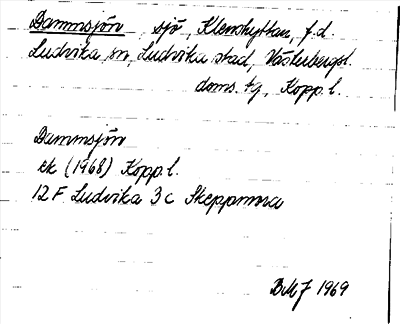 Dammsjön sjö, Klenshyttan, f.d.
Ludvika sn, Ludvika stad, Västerbergsl.
doms. tg, Kopp. l.
Dammsjön
ek (1968) Kopp. l.
12 F Ludvika 3 c Skeppmora
BMJ 1969